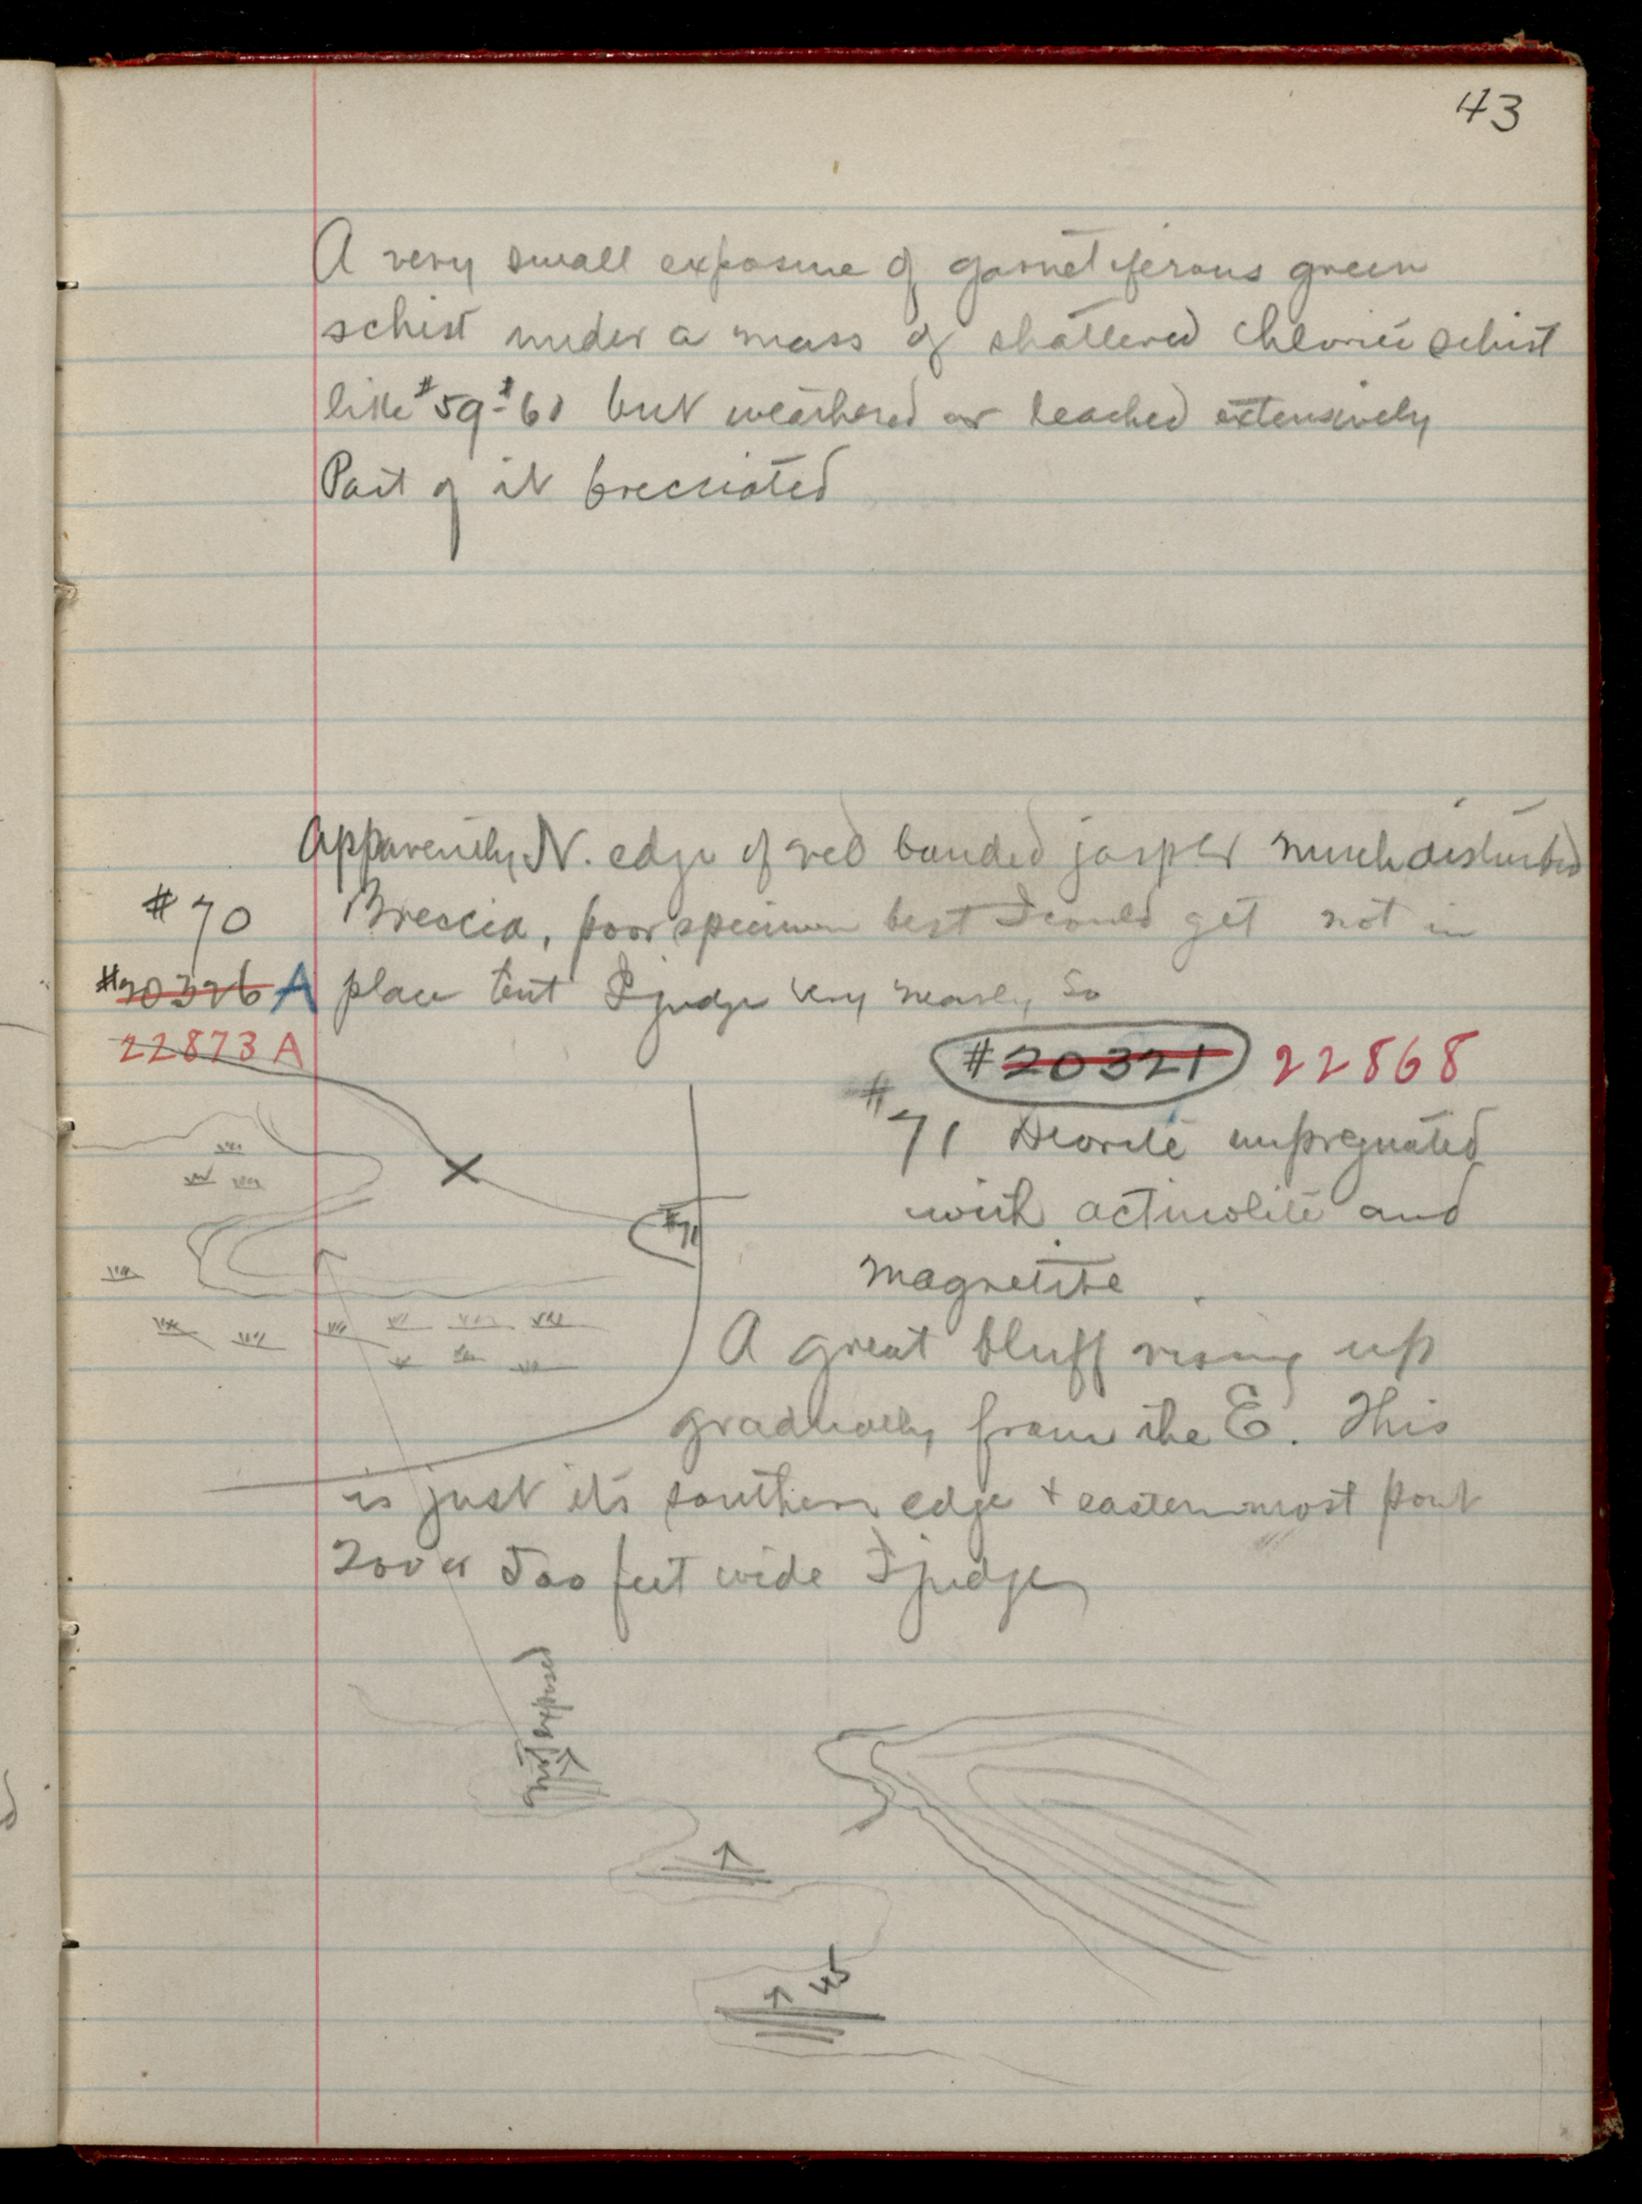 43
A very small exposure of garnetiferous green
schist under a mass of shattered chloritic schist
like #59-#60 but weathered or leached extensively
Part of it brecciated
Apparently N. edge of red banded jasper much disturbed
#70 Breccia, poor specimen best I could get not in
#20326 A place but I judge very nearly so
22873 A
#20321 22868
#71 Diorite impregnated
with actinolite and
magnetite
#71
A great bluff rising up
gradually from the E. This
is just its southern edge + easternmost point
200 or 500 feet wide I judge
exposed
45